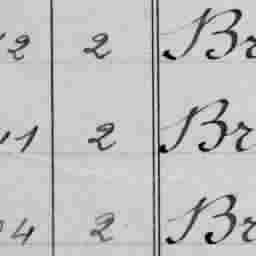 2 2 Br
11 2 Br
4 2 Br